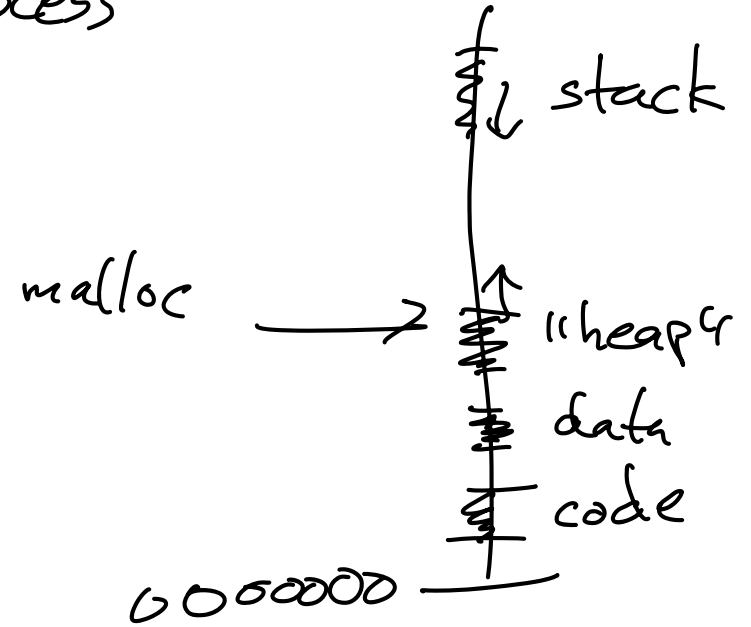 stack
malloc
"heap"
data
code
0000000